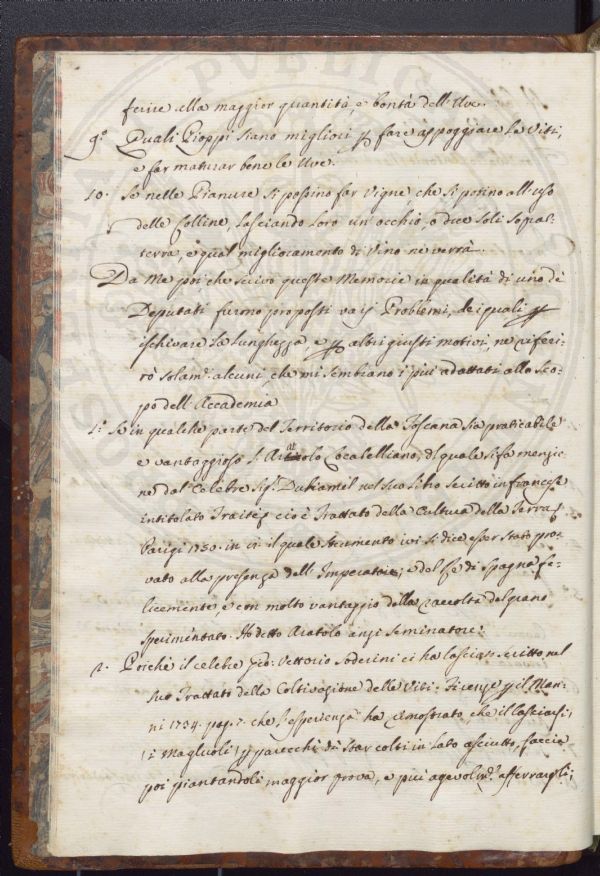 ferire alla maggior quantità, e bontà dell'Uve.
9.° Quali Pioppi siano migliori p fare appoggiare le Viti,
e far maturar bene le Uve.
10. Se nelle Pianure si possino far Vigne, che si potino all'uso
delle Colline, lasciando loro un'occhio, o due soli sopra
terra, e qual miglioramento di Vino ne verrà.
Da me poi che scrivo queste Memorie in qualità di uno dè
Deputati furno proposti varij Problemi, de i quali p
ischivare la lunghezza, e p altri giusti motivi, ne riferi-
rò solam.e alcuni, che mi sembrano i più adattati allo sco-
po dell'Accademia
1.° Se in qualche parte del Territorio della Toscana sia praticabile
e vantaggioso l'Aratolo Cocalelliano, del quale si fa menzio-
ne dal Celebre Sig.r Duhamel nel suo libro scritto in francese
intitolato Traitè cio è Trattato della Cultura della Terra
Parigi 1750. in il quale strumento ivi si dice esser stato pro-
vato alla presenza dell'Imperatore, e del Rè di Spagna fe-
licemente, e con molto vantaggio della raccolta del grano
sperimentato. Ho detto Aratolo anzi Seminatore.
2. Poichè il celebre Gio: Vettorio Soderini ci ha lasciato scritto nel
suo Trattato della Coltivazione delle Viti. Firenze p il Man-
ni 1734. pag. 7. che l'esperienza ha dimostrato, che il lasciarsi
(i Magliuoli) p parecchi dì star colti in lato asciutto, faccia
poi piantandoli maggior prova, e più agevolm.e afferrargli;